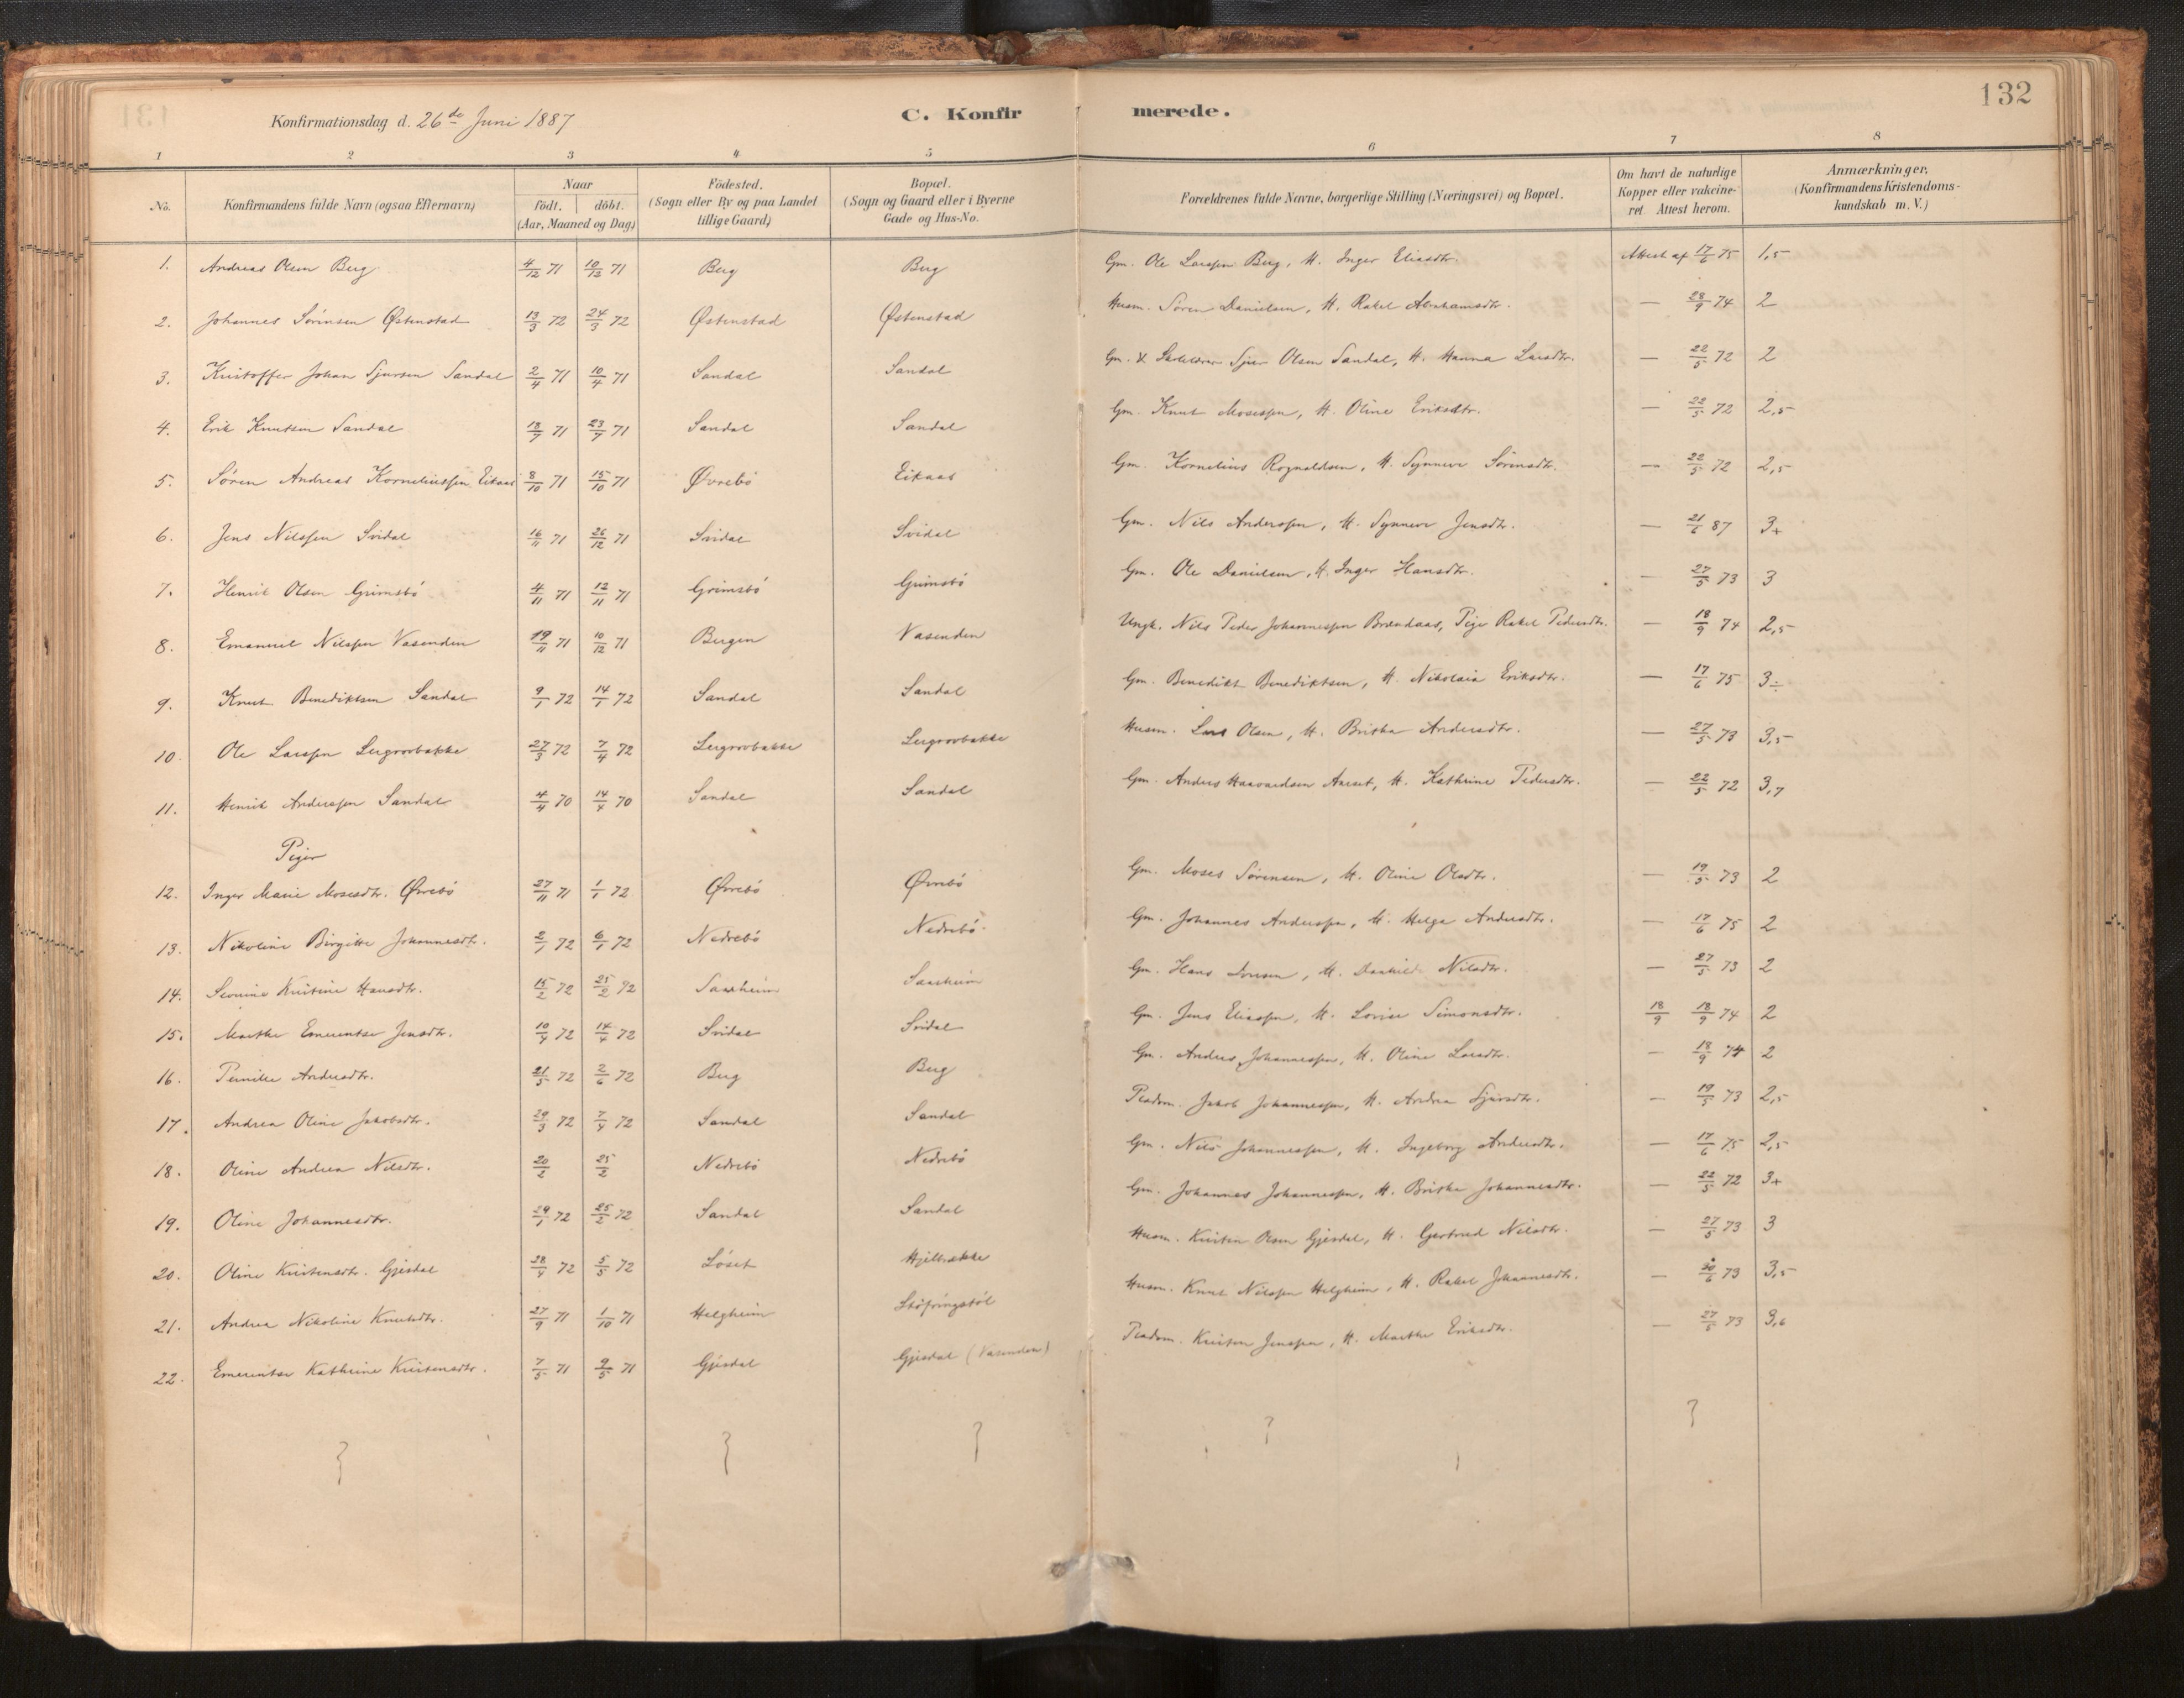 132
Konfirmationsdag d. 26de Juni 1887
C. Konfirmerede.
1 2 3 4 5 6 7 8
No. Konfirmandens fulde Navn (ogsaa Efternavn) Naar födt. döbt. (Aar, Maaned og Dag) Födested. (Sogn eller By og paa Landet tillige Gaard) Bopæl. (Sogn og Gaard eller i Byerne Gade og Hus-No. Forældrenes fulde Navne, borgerlige Stilling (Næringsvei) og Bopæl. Om havt de naturlige Kopper eller vakcineret. Attest herom. Anmærkninger. (Konfirmandens Kristendomskundskab m. V.)
1. Andreas Olsen Berg 4/12 71 10/12 71 Berg Berg Gm. Ole Larssen Berg, H. Inger Eliasdtr. Attest af 17/6 75 1,5
2. Johannes Sörensen Østenstad 13/3 72 24/3 72 Østenstad Østenstad Husm. Sören Danielsen, H. Rakel Abrahamsdtr. — 28/9 74 2
3. Kristoffer Johan Sjursen Sandal 2/4 71 10/4 71 Sandal Sandal Gm. & Skolelærer Sjur Olsen Sandal, H. Hanna Larsdtr. — 22/5 72 2
4. Erik Knutsen Sandal 18/7 71 23/7 71 Sandal Sandal Gm. Knut Mosessen, H. Oline Eriksdtr. — 22/5 72 2,5
5. Sören Andreas Korneliussen Eikaas 8/10 71 15/10 71 Øvrebö Eikaas Gm. Kornelius Rognaldsen, H. Synneve Sörensdtr. — 22/5 72 2,5
6. Jens Nilssen Svidal 16/11 71 26/12 71 Svidal Svidal Gm. Nils Anderssen, H. Synneve Jensdtr. — 21/6 87 3+
7. Henrik Olsen Grimsbö 4/11 71 12/11 71 Grimsbö Grimsbö Gm. Ole Danielsen, H. Inger Hansdtr. — 27/5 73 3
8. Emanuel Nilssen Vasenden 19/11 71 10/12 71 Bergen Vasenden Ungk. Nils Peder Johannessen Brændaas, Pige Rakel Pedersdtr. — 18/9 74 2,5
9. Knut Benediktsen Sandal 9/1 72 14/1 72 Sandal Sandal Gm. Benedikt Benediktsen, H. Nikolaia Eriksdtr. — 17/6 75 3÷
10. Ole Larssen Lergrovbakke 27/3 72 7/4 72 Lergrovbakke Lergrovbakke Husm. Lars Olsen, H. Britha Andersdtr. — 27/5 73 3,5
11. Henrik Anderssen Sandal 4/4 70 14/4 70 Sandal Sandal Gm. Anders Haavardsen Aarset, H. Kathrine Pedersdtr. — 22/5 72 3,7
Piger
12. Inger Marie Mosesdtr. Øvrebö 27/11 71 1/1 72 Øvrebö Øvrebö Gm. Moses Sörensen, H. Oline Olsdtr. — 19/5 73 2
13. Nikoline Birgitte Johannesdtr. 2/1 72 6/1 72 Nedrebö Nedrebö Gm. Johannes Anderssen, H. Helga Andersdtr. — 17/6 75 2
14. Kristine Hansdtr. 15/2 72 25/2 72 Gm. Hans H. Nilsdtr. — 27/5 73 2
15. Marthe Emerentse Jensdtr. 10/4 72 14/4 72 Svidal Svidal Gm. Jens Eliassen, H. Lovise Simonsdtr. 18/9 18/9 74 2
16. Pernille Andersdtr. 21/5 72 2/6 72 Berg Berg Gm. Anders Johannessen, H. Oline Larsdtr. — 18/9 74 2
17. Andrea Oline Jakobsdtr. 29/3 72 7/4 72 Sandal Sandal Pladsm. Jakob Johannessen, H. Andrea Sjursdtr. — 19/5 73 2,5
18. Oline Andrea Nilsdtr. 20/2 25/2 Nedrebö Nedrebö Gm. Nils Johannessen, H. Ingeborg Andersdtr. — 17/6 75 2,5
19. Oline Johannesdtr. 29/1 72 25/2 72 Sandal Sandal Gm. Johannes Johannessen, H. Britha Johannesdtr. — 22/5 72 3+
20. Oline Kristensdtr. Gjesdal 28/4 72 5/5 72 Löset Hjelbrekke Husm. Kristen Olsen Gjesdal, H. Gertrud Nilsdtr. — 27/5 73 3
21. Andrea Nikoline Knutsdtr. 27/9 71 1/10 71 Helgheim Stöfringstöl Husm. Knut Nilssen Helgheim, H. Rakel Johannesdtr. — 20/6 73 3,5
22. Emerentse Kathrine Kristensdtr. 7/5 71 9/5 71 Gjesdal Gjesdal (Vasenden) Pladsm. Kristen Jenssen, H. Marthe Eriksdtr. — 27/5 73 3,6